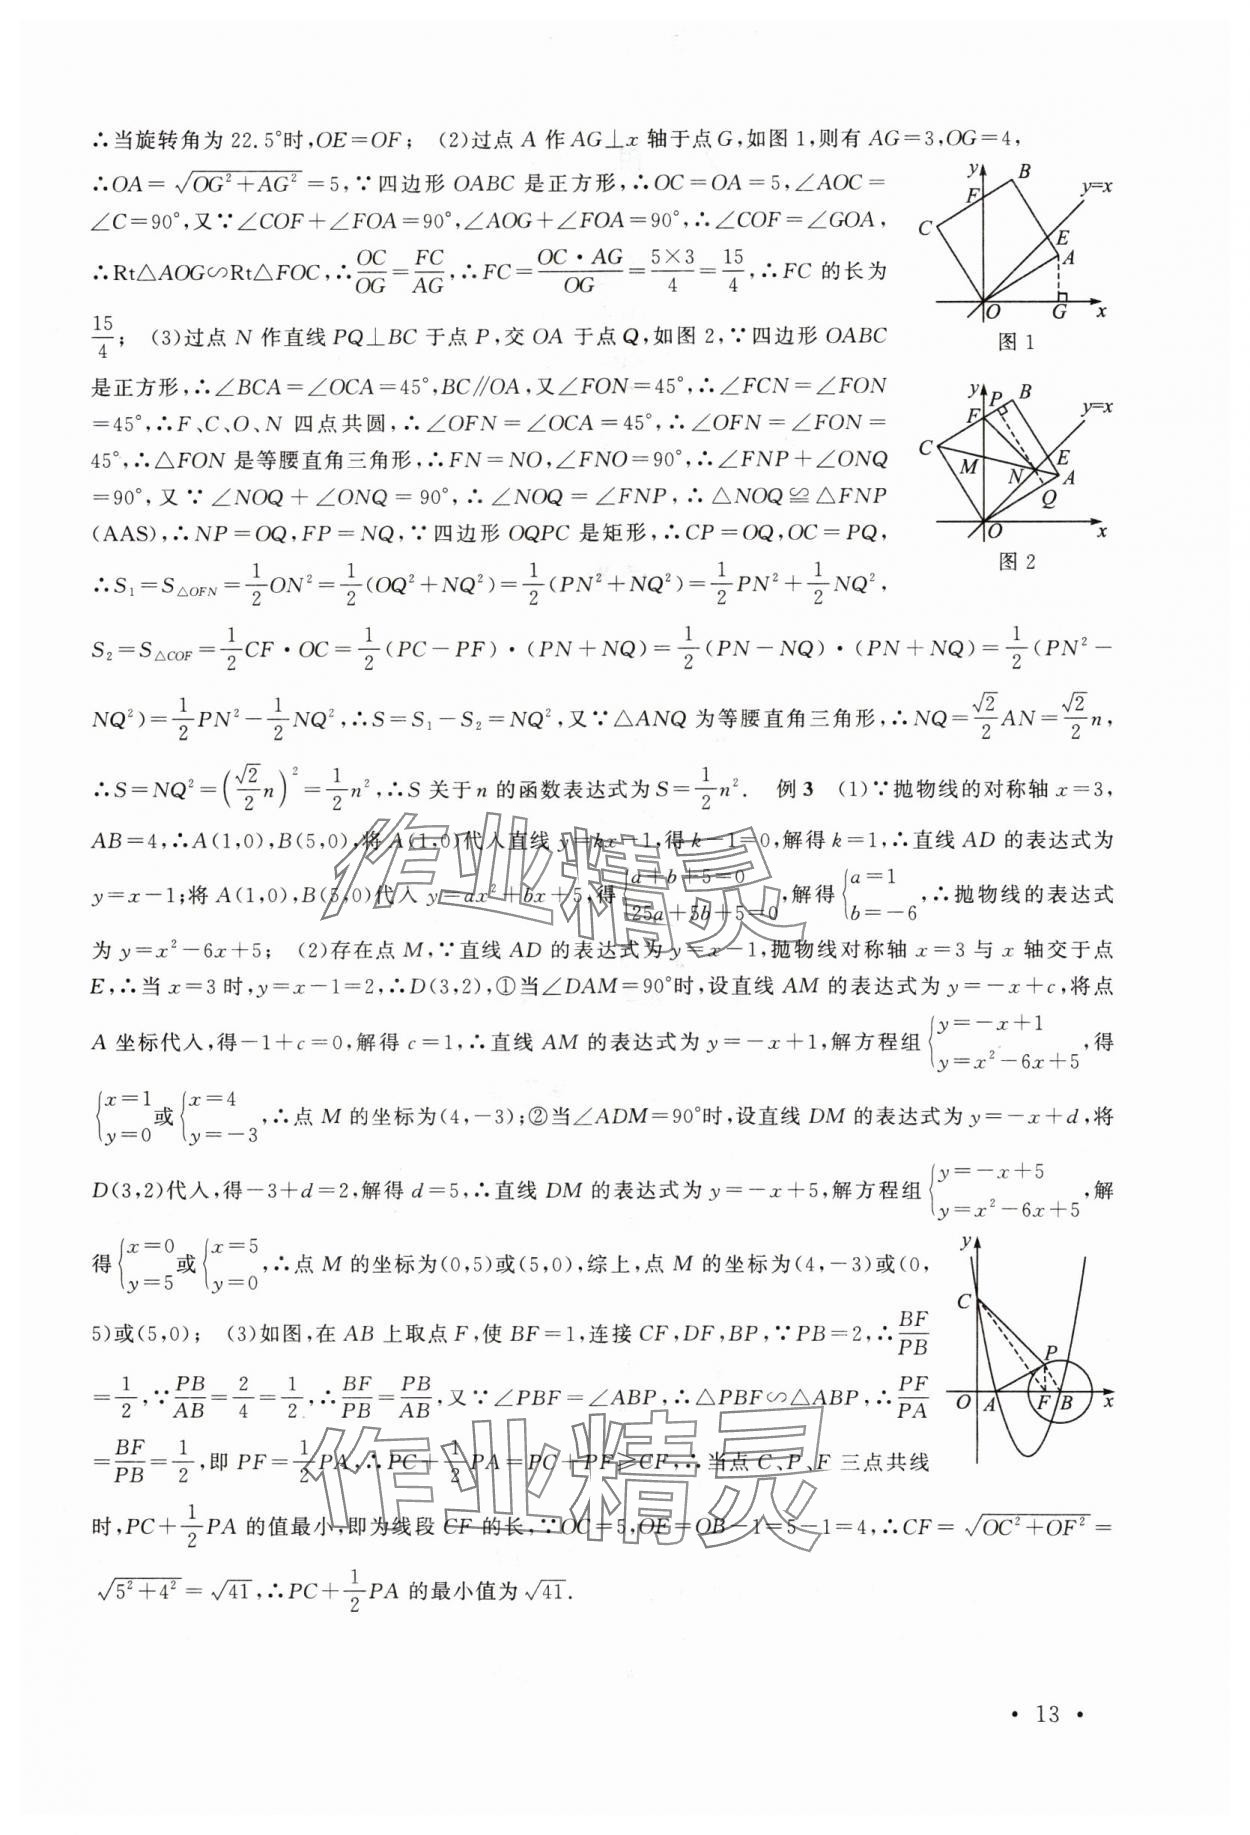 ∴当旋转角为 22.5°时,OE=OF； (2)过点 A 作 AG⊥x 轴于点G,如图 1,则有 AG=3,OG=4,
∴OA=√(OG²+AG²)=5,∵四边形 OABC 是正方形,∴OC=OA=5,∠AOC=
∠C=90°,又∵∠COF+∠FOA=90°,∠AOG+∠FOA=90°,∴∠COF=∠GOA,
∴Rt△AOG∽Rt△FOC,∴OC/OG=FC/AG,∴FC=OC·AG/OG=5×3/4=15/4,∴FC 的长为
15/4； (3)过点 N 作直线 PQ⊥BC 于点 P,交 OA 于点Q,如图 2,∵四边形 OABC
是正方形,∴∠BCA=∠OCA=45°,BC∥OA,又∠FON=45°,∴∠FCN=∠FON
=45°,∴F、C、O、N 四点共圆,∴∠OFN=∠OCA=45°,∴∠OFN=∠FON=
45°,∴△FON 是等腰直角三角形,∴FN=NO,∠FNO=90°,∴∠FNP+∠ONQ
=90°,又∵∠NOQ+∠ONQ=90°,∴∠NOQ=∠FNP,∴△NOQ≌△FNP
(AAS),∴NP=OQ,FP=NQ,∵四边形 OQPC 是矩形,∴CP=OQ,OC=PQ,
∴S₁=S△OFN=1/2ON²=1/2(OQ²+NQ²)=1/2(PN²+NQ²)=1/2PN²+1/2NQ²,
S₂=S△COF=1/2CF·OC=1/2(PC-PF)·(PN+NQ)=1/2(PN-NQ)·(PN+NQ)=1/2(PN²-
NQ²)=1/2PN²-1/2NQ²,∴S=S₁-S₂=NQ²,又∵△ANQ 为等腰直角三角形,∴NQ=√2/2AN=√2/2n,
∴S=NQ²=(√2/2n)²=1/2n²,∴S 关于n 的函数表达式为S=1/2n². 例3 (1)∵抛物线的对称轴 x=3,
AB=4,∴A(1,0),B(5,0),将 A(1,0)代入直线 y=kx-1,得 k-1=0,解得 k=1,∴直线 AD 的表达式为
y=x-1;将 A(1,0),B(5,0)代入 y=ax²+bx+5,得{a+b+5=0 25a+5b+5=0,解得{a=1 b=-6,∴抛物线的表达式
为 y=x²-6x+5； (2)存在点 M,∵直线 AD 的表达式为 y=x-1,抛物线对称轴 x=3 与 x 轴交于点
E,∴当 x=3 时,y=x-1=2,∴D(3,2),①当∠DAM=90°时,设直线 AM 的表达式为 y=-x+c,将点
A 坐标代入,得-1+c=0,解得 c=1,∴直线 AM 的表达式为 y=-x+1,解方程组{y=-x+1 y=x²-6x+5,得
{x=1 y=0或{x=4 y=-3,∴点 M 的坐标为(4,-3);②当∠ADM=90°时,设直线 DM 的表达式为 y=-x+d,将
D(3,2)代入,得-3+d=2,解得 d=5,∴直线 DM 的表达式为 y=-x+5,解方程组{y=-x+5 y=x²-6x+5,解
得{x=0 y=5或{x=5 y=0,∴点 M 的坐标为(0,5)或(5,0),综上,点 M 的坐标为(4,-3)或(0,
5)或(5,0)； (3)如图,在 AB 上取点 F,使 BF=1,连接 CF,DF,BP,∵PB=2,∴BF/PB
=1/2,∵PB/AB=2/4=1/2,∴BF/PB=PB/AB,又∵∠PBF=∠ABP,∴△PBF∽△ABP,∴PF/PA
=BF/PB=1/2,即 PF=1/2PA,∴PC+1/2PA=PC+PF≥CF,∴当点 C、P、F 三点共线
时,PC+1/2PA 的值最小,即为线段 CF 的长,∵OC=5,OF=OB-1=5-1=4,∴CF=√(OC²+OF²)=
√(5²+4²)=√41,∴PC+1/2PA 的最小值为√41.
y
B
F
y=x
C
E
A
O
G
x
图 1
y
P
B
F
y=x
C
M
N
E
A
Q
O
x
图 2
y
C
P
O
A
F
B
x
作业精灵
作业精灵
· 13 ·